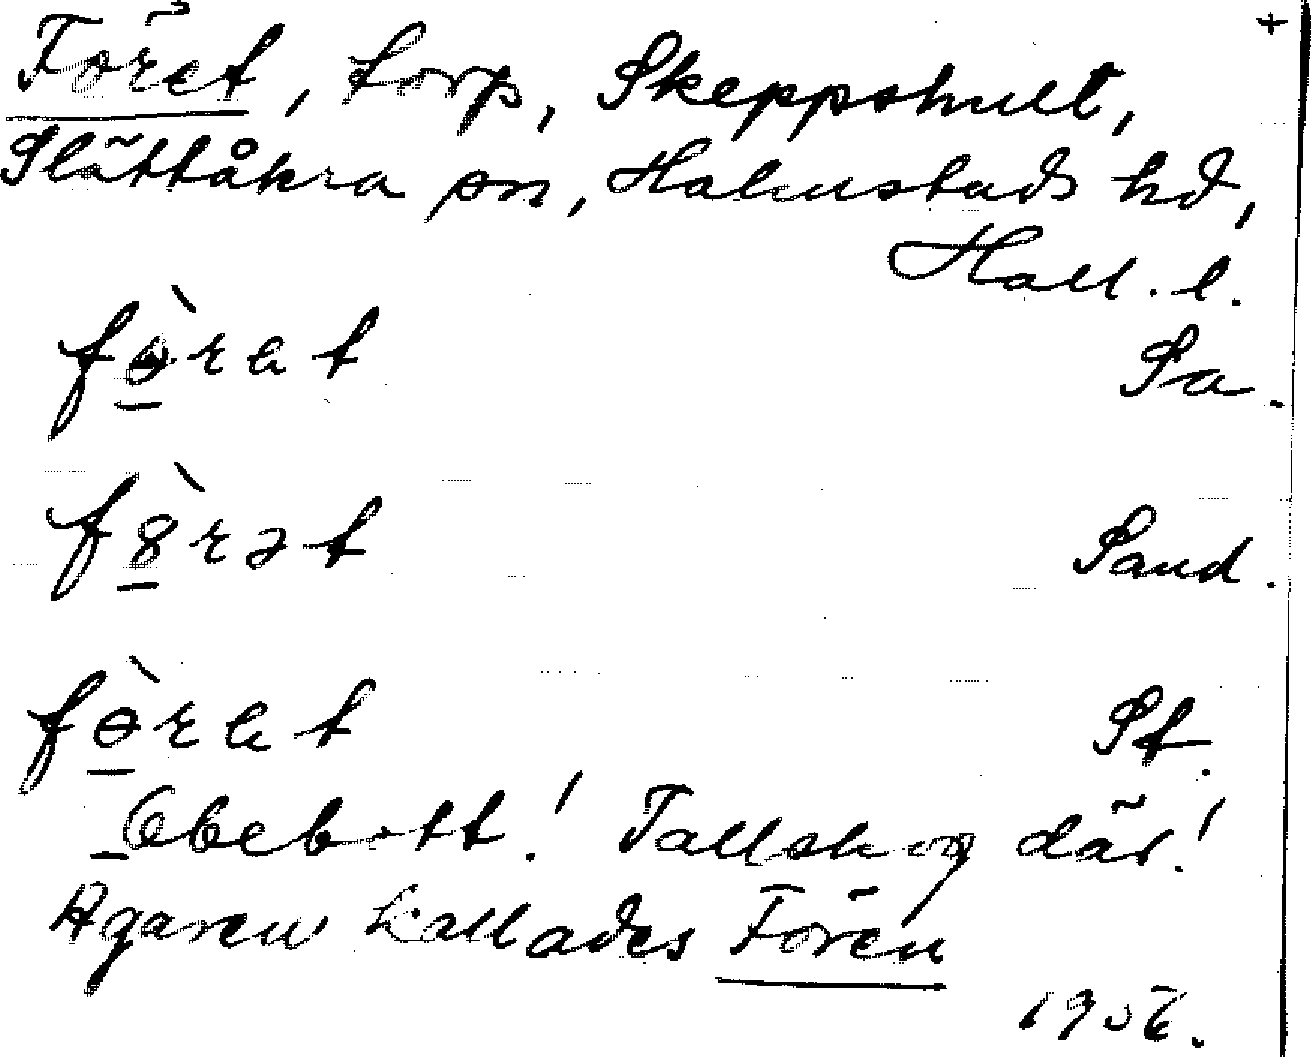 +
Föret, torp, Skeppshult,
Slättåkra sn, Halmstads hd,
Hall. l.
fɵ̀rat Sa.
fꝏ̀rət Sand.
fɵ̀rat St.
Obebott! Tallskog där!
Ägaren kallades Fören
1956.